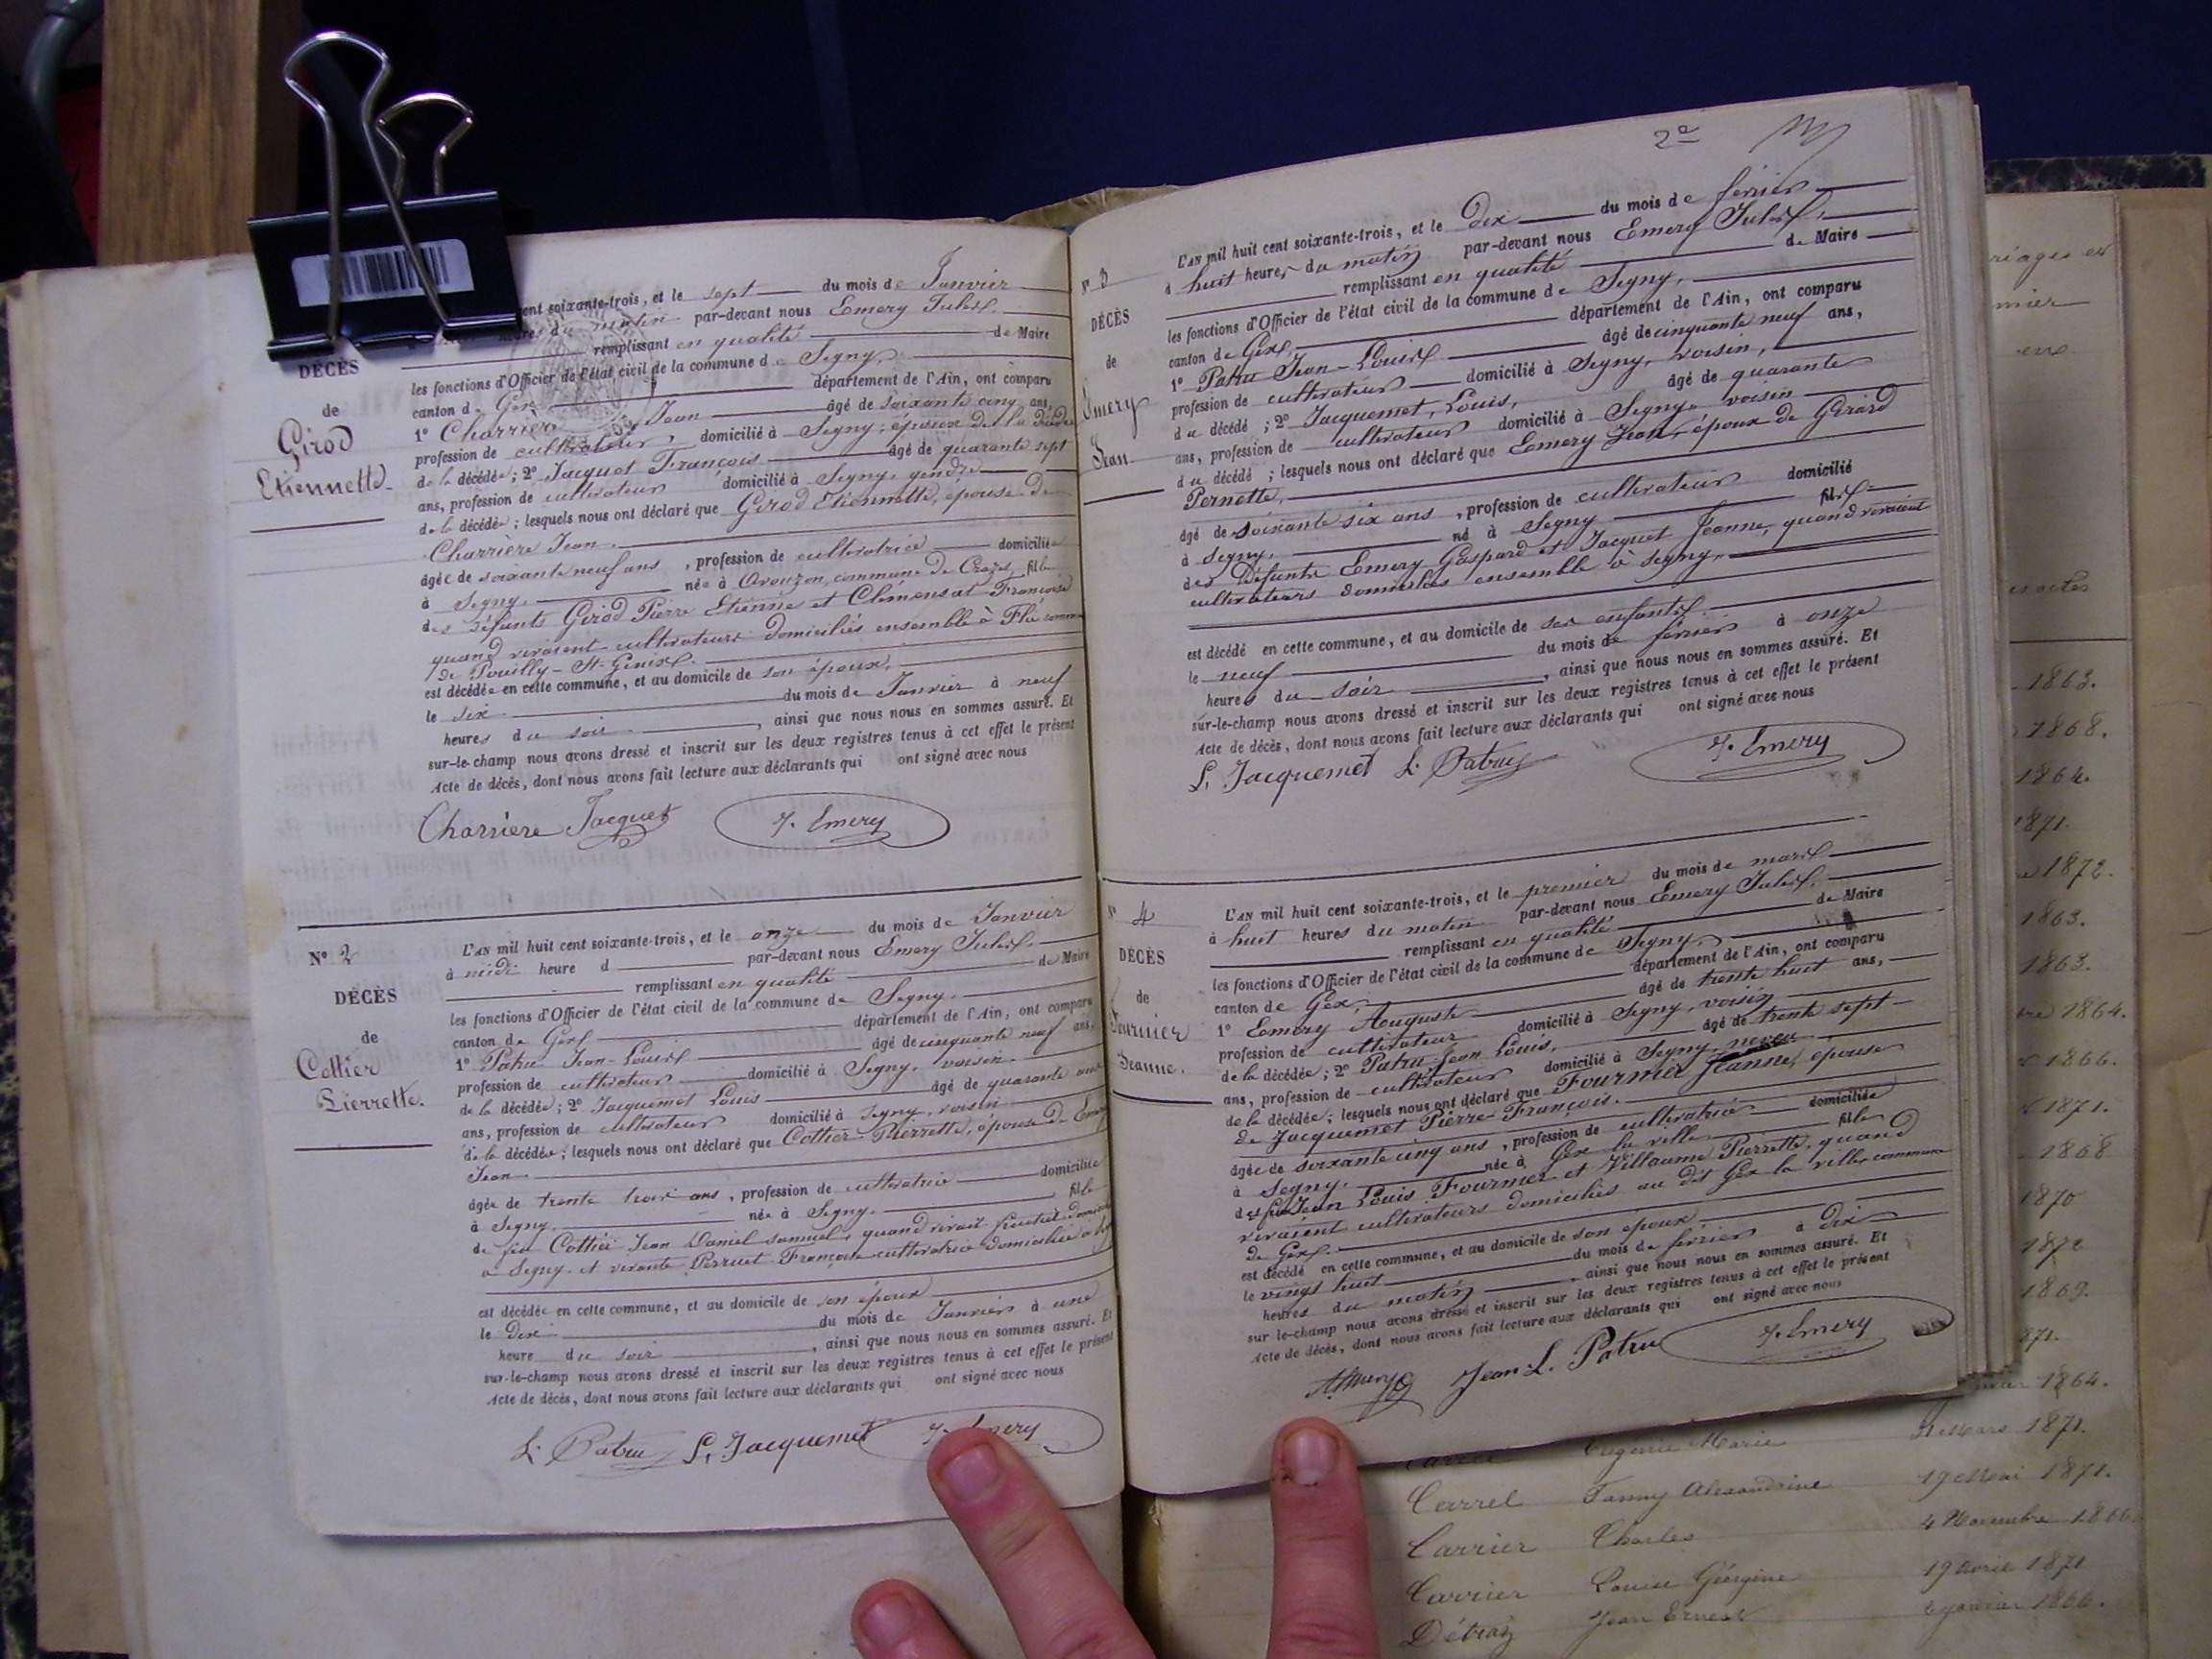 ent soixante-trois, et le sept du mois de Janvier
heures du matin par-devant nous Emery Jules.
remplissant en qualité de Maire
DÉCÈS
de
Girod
Etiennette
les fonctions d'Officier de l'état civil de la commune de Segny,
canton de Gex département de l'Ain, ont comparu
1° Charrière Jean âgé de soixante cinq ans,
profession de cultivateur, domicilié à Segny, époux de la dite
de la décédée; 2° Jacquet François âgé de quarante sept
ans, profession de cultivateur domicilié à Segny, gendre
de la décédée; lesquels nous ont déclaré que Girod Etiennette, épouse de
Charrière Jean
âgée de soixante neuf ans, profession de cultivatrice domiciliée
à Segny. née à Avouzon, commune de Crozet, fille
des défunts Girod Pierre Etienne et Clémensat Françoise
quand vivaient cultivateurs domiciliés ensemble à Flié commune
de Pouilly-St-Genix.
est décédée en cette commune, et au domicile de son époux,
le six du mois de Janvier à neuf
heures du soir, ainsi que nous nous en sommes assuré. Et
sur-le-champ nous avons dressé et inscrit sur les deux registres tenus à cet effet le présent
Acte de décès, dont nous avons fait lecture aux déclarants qui ont signé avec nous
Charriere Jacquet J. Emery
N° 2
DÉCÈS
de
Cottier
Pierrette.
L'AN mil huit cent soixante-trois, et le onze du mois de Janvier
à midi heure d par-devant nous Emery Jules.
remplissant en qualité de Maire
les fonctions d'Officier de l'état civil de la commune de Segny.
canton de Gex département de l'Ain, ont comparu
1° Patru Jean-Louis âgé de cinquante neuf ans,
profession de cultivateur domicilié à Segny, voisin
de la décédée; 2° Jacquemet Louis âgé de quarante
ans, profession de cultivateur domicilié à Segny, voisin
de la décédée; lesquels nous ont déclaré que Cottier Pierrette, épouse de Emery
Jean
âgée de trente trois ans, profession de cultivatrice domiciliée
à Segny. née à Segny. fille
de feu Cottier Jean Daniel Samuel, quand vivait
à Segny et vivante Perruet Françoise cultivatrice domiciliée à
est décédée en cette commune, et au domicile de son époux
le dix du mois de Janvier à une
heure du soir, ainsi que nous nous en sommes assuré. Et
sur-le-champ nous avons dressé et inscrit sur les deux registres tenus à cet effet le présent
Acte de décès, dont nous avons fait lecture aux déclarants qui ont signé avec nous
L. Patru L. Jacquemet J. Emery
2e
N° 3
DÉCÈS
de
Emery
Jean
L'AN mil huit cent soixante-trois, et le Dix du mois de février
à huit heures du matin par-devant nous Emery Jules,
remplissant en qualité de Maire
les fonctions d'Officier de l'état civil de la commune de Segny,
canton de Gex, département de l'Ain, ont comparu
1° Patru Jean-Louis âgé de cinquante neuf ans,
profession de cultivateur domicilié à Segny, voisin,
du décédé; 2° Jacquemet, Louis, âgé de quarante
ans, profession de cultivateur domicilié à Segny, voisin
du décédé; lesquels nous ont déclaré que Emery Jean, époux de Girard
Pernette,
âgé de soixante six ans, profession de cultivateur domicilié
à Segny, né à Segny fils
des défunts Emery Gaspard et Jacquet Jeanne, quand vivaient
cultivateurs domiciliés ensemble à Segny,
est décédé en cette commune, et au domicile de ses enfants.
le neuf du mois de février à onze
heures du soir, ainsi que nous nous en sommes assuré. Et
sur-le-champ nous avons dressé et inscrit sur les deux registres tenus à cet effet le présent
Acte de décès, dont nous avons fait lecture aux déclarants qui ont signé avec nous
L. Jacquemet L. Patru J. Emery
N° 4
DÉCÈS
de
Fournier
Jeanne.
L'AN mil huit cent soixante-trois, et le premier du mois de mars
à huit heures du matin par-devant nous Emery Jules,
remplissant en qualité de Maire
les fonctions d'Officier de l'état civil de la commune de Segny,
canton de Gex, département de l'Ain, ont comparu
1° Emery Auguste âgé de trente huit ans,
profession de cultivateur domicilié à Segny, voisin
de la décédée; 2° Patru Jean Louis, âgé de trente sept
ans, profession de cultivateur domicilié à Segny, neveu
de la décédée; lesquels nous ont déclaré que Fournier Jeanne, épouse
de Jacquemet Pierre François.
âgée de soixante cinq ans, profession de cultivatrice domiciliée
à Segny, née à Gex la ville fille
des feu Jean Louis Fournier et Villaume Pierrette, quand
vivaient cultivateurs domiciliés au dit Gex la ville commune
de Gex.
est décédé en cette commune, et au domicile de son époux
le vingt huit du mois de février à Dix
heures du matin, ainsi que nous nous en sommes assuré. Et
sur-le-champ nous avons dressé et inscrit sur les deux registres tenus à cet effet le présent
Acte de décès, dont nous avons fait lecture aux déclarants qui ont signé avec nous
Jean L. Patru J. Emery
riages et
mier
1863.
1868.
1864.
1871.
1872.
1863.
1863.
1864.
1866.
1871.
1868
1870
1872
1869.
871.
1864.
Eugenie Marie Mars 1871.
Carrel Fanny Alexandrine 19 Mai 1871.
Carrier Charles 4 Novembre 1866.
Carrier Louise Géorgine 19 Avril 1871
Détraz Jean Ernest Janvier 1866.